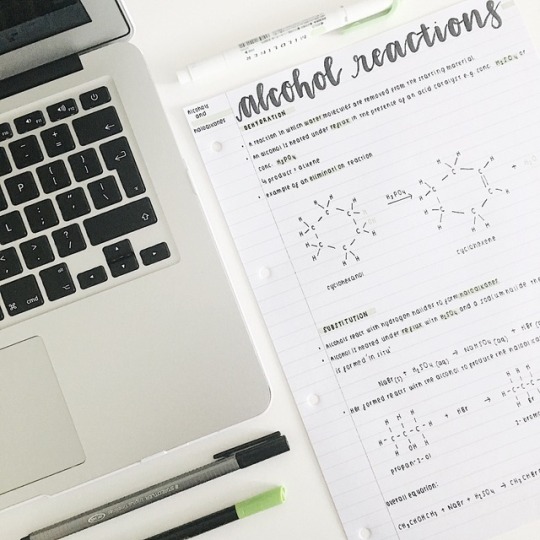 alcohol reactions
Alcohols
and
haloalkanes
DEHYDRATION
• A reaction in which water molecules are removed from the starting material
• An alcohol is heated under reflux in the presence of an acid catalyst e.g. conc. H₂SO₄ or
conc. H₃PO₄
↳ product = alkene
• example of an elimination reaction
H₃PO₄
cyclohexanol
cyclohexene
SUBSTITUTION
• Alcohols react with hydrogen halides to form haloalkanes
• Alcohol is heated under reflux with H₂SO₄ and a sodium halide. the
is formed 'in situ'
NaBr(s) + H₂SO₄(aq) → NaHSO₄(aq) + HBr
• HBr formed reacts with the alcohol to produce the haloalka
+ HBr →
propan-2-ol
2-brom
overall equation:
CH₃CHOHCH₃ + NaBr + H₂SO₄ → CH₃CHBr
cmd